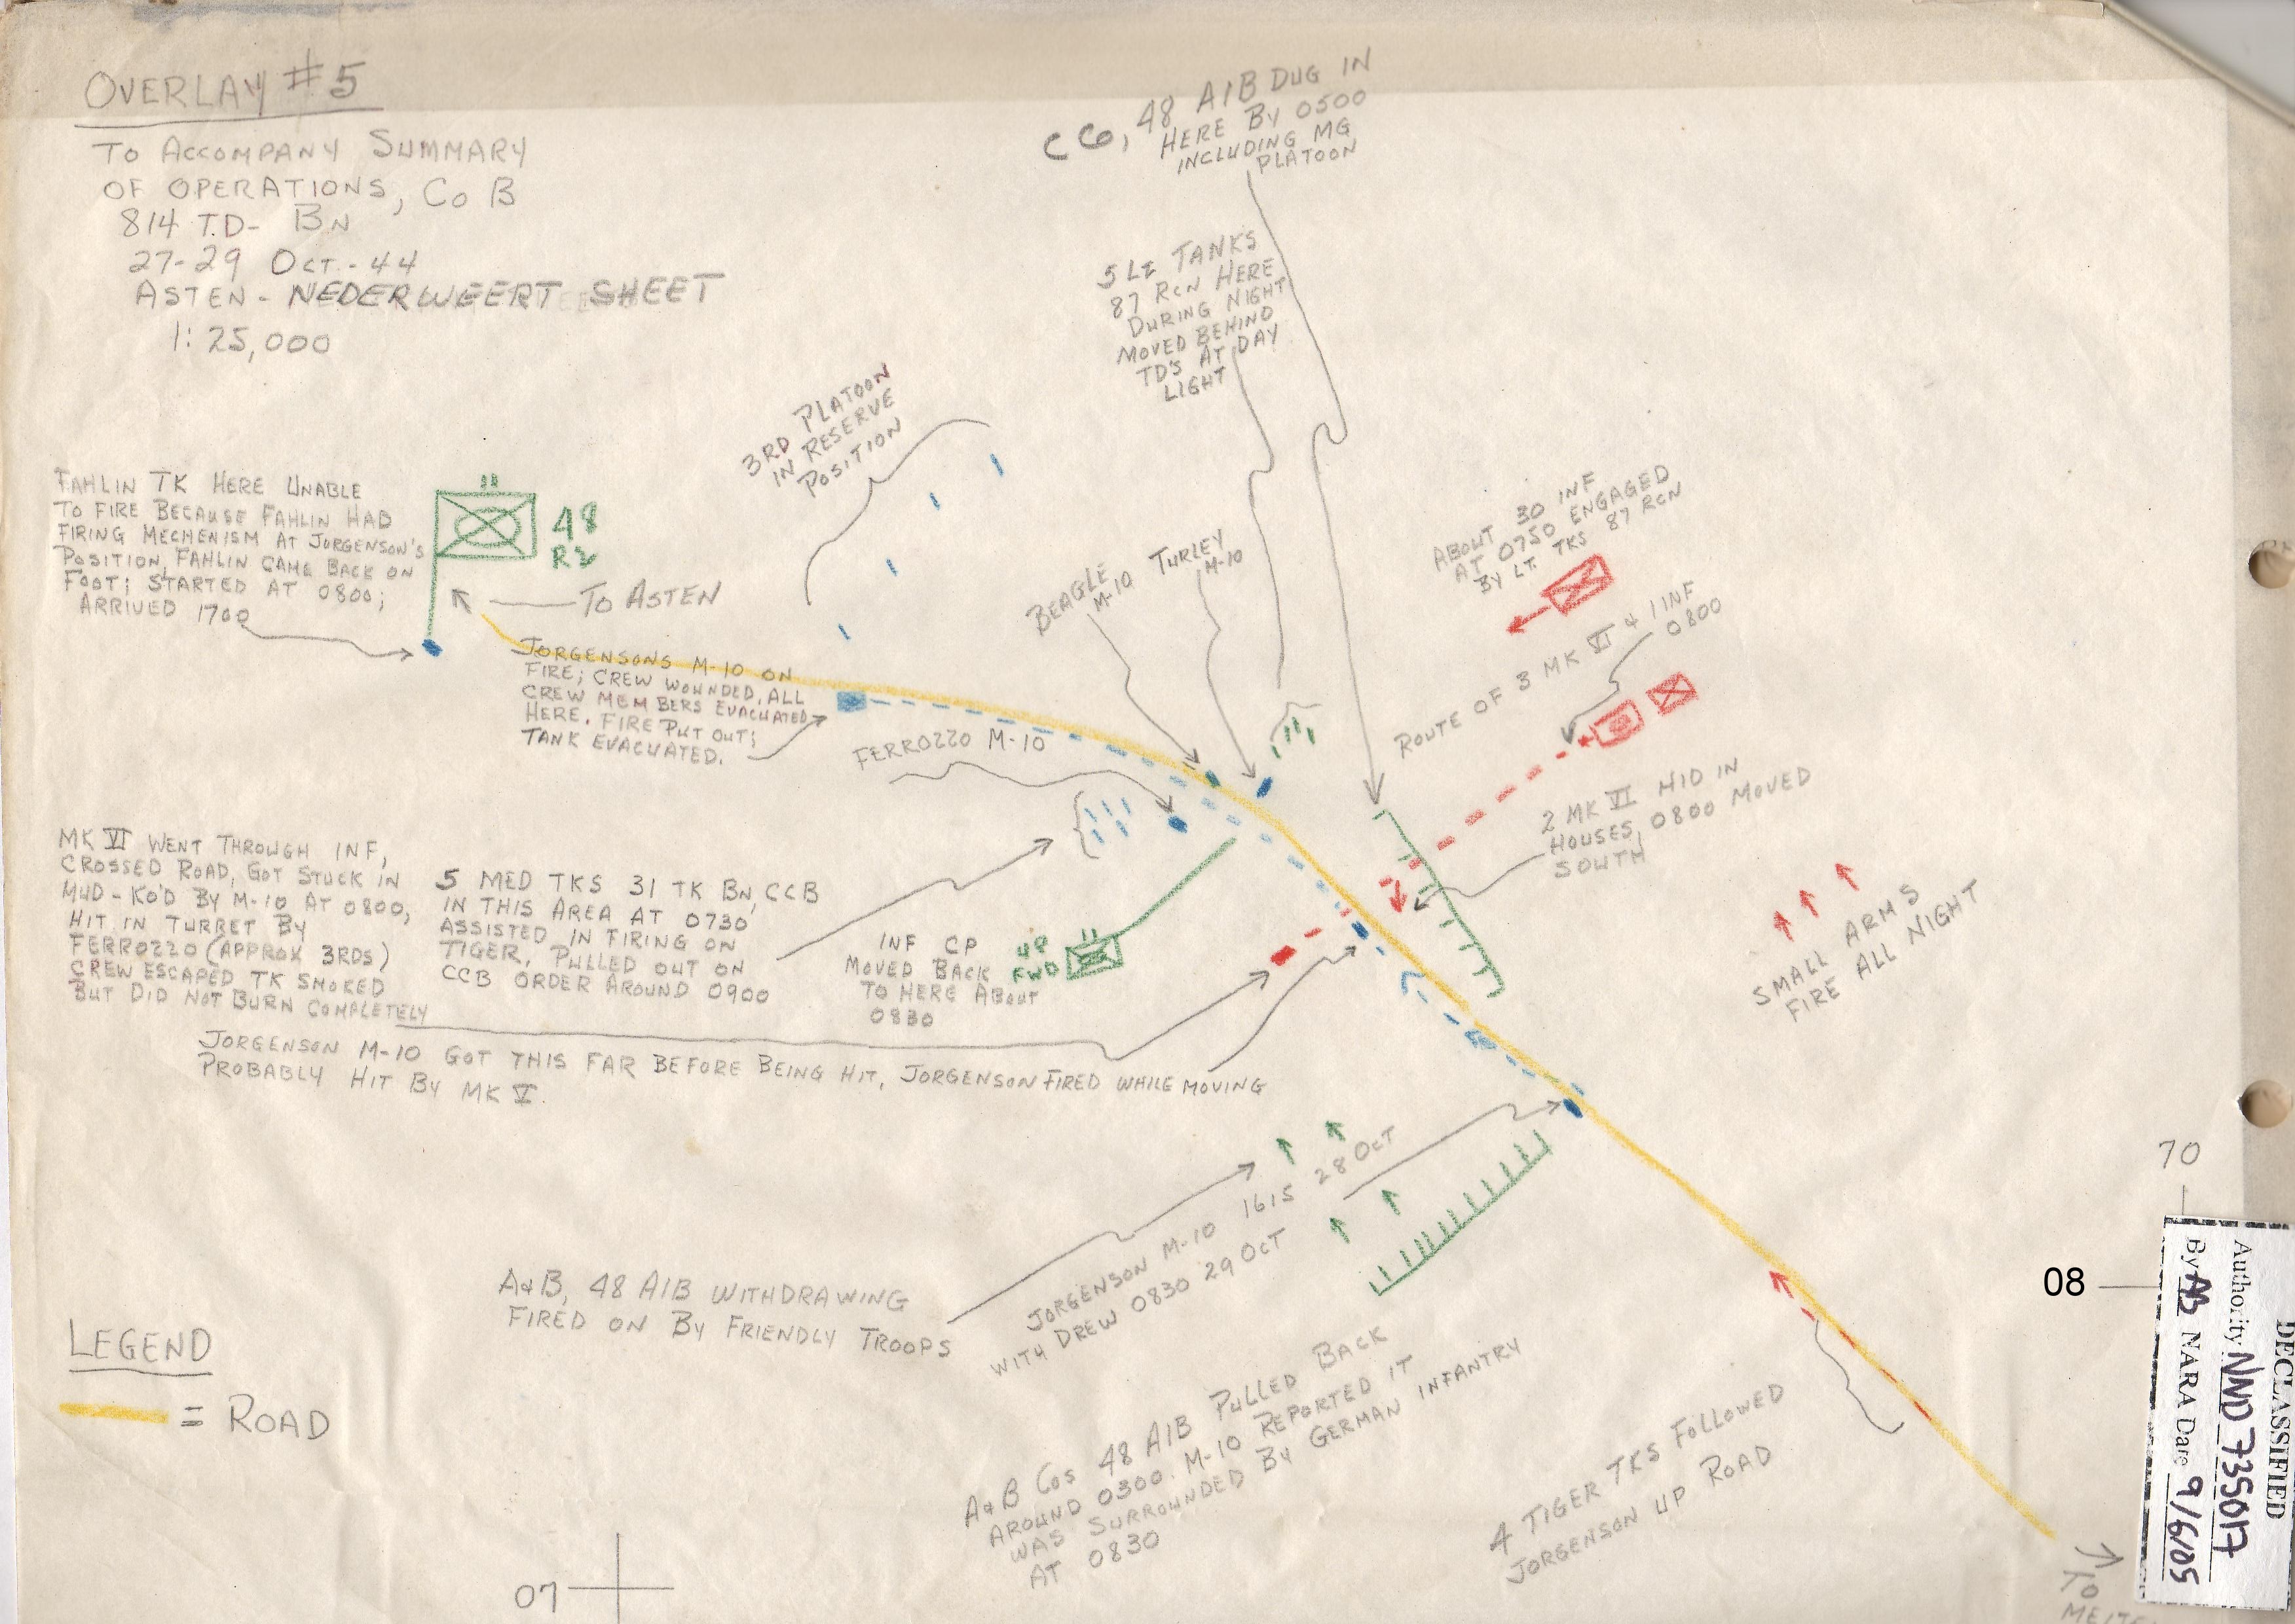 OVERLAY #5
TO ACCOMPANY SUMMARY
OF OPERATIONS, CO B
814 T.D- BN
27-29 OCT.-44
ASTEN - NEDERWEERT SHEET
1:25,000
C CO, 48 AIB DUG IN
HERE BY 0500
INCLUDING MG
PLATOON
5 LT TANKS
87 RCN HERE
DURING NIGHT
MOVED BEHIND
TD'S AT DAY
LIGHT
3RD PLATOON
IN RESERVE
POSITION
FAHLIN TK HERE UNABLE
TO FIRE BECAUSE FAHLIN HAD
FIRING MECHENISM AT JORGENSON'S
POSITION, FAHLIN CAME BACK ON
FOOT; STARTED AT 0800;
ARRIVED 1700
48
R2
TO ASTEN
BEAGLE
M-10
TURLEY
M-10
ABOUT 30 INF
AT 0750 ENGAGED
BY LT. TKS 87 RCN
ROUTE OF 3 MK VI & 1 INF
0800
JORGENSONS M-10 ON
FIRE; CREW WOUNDED, ALL
CREW MEMBERS EVACUATED
HERE. FIRE PUT OUT;
TANK EVACUATED.
FERROZZO M-10
2 MK VI HID IN
HOUSES, 0800 MOVED
SOUTH
MK VI WENT THROUGH INF,
CROSSED ROAD, GOT STUCK IN
MUD - KO'D BY M-10 AT 0800,
HIT IN TURRET BY
FERROZZO (APPROX 3RDS)
CREW ESCAPED TK SMOKED
BUT DID NOT BURN COMPLETELY
5 MED TKS 31 TK BN, CCB
IN THIS AREA AT 0730
ASSISTED IN FIRING ON
TIGER, PULLED OUT ON
CCB ORDER AROUND 0900
INF CP
MOVED BACK
TO HERE ABOUT
0830
48
FWD
SMALL ARMS
FIRE ALL NIGHT
JORGENSON M-10 GOT THIS FAR BEFORE BEING HIT, JORGENSON FIRED WHILE MOVING
PROBABLY HIT BY MK V.
JORGENSON M-10 1615 28 OCT
WITH DREW 0830 29 OCT
A&B, 48 AIB WITHDRAWING
FIRED ON BY FRIENDLY TROOPS
A&B COS 48 AIB PULLED BACK
AROUND 0300. M-10 REPORTED IT
WAS SURROUNDED BY GERMAN INFANTRY
AT 0830
4 TIGER TKS FOLLOWED
JORGENSON UP ROAD
LEGEND
= ROAD
70
08
07
TO
DECLASSIFIED
Authority NND 735017
By AB NARA Date 9/6/05